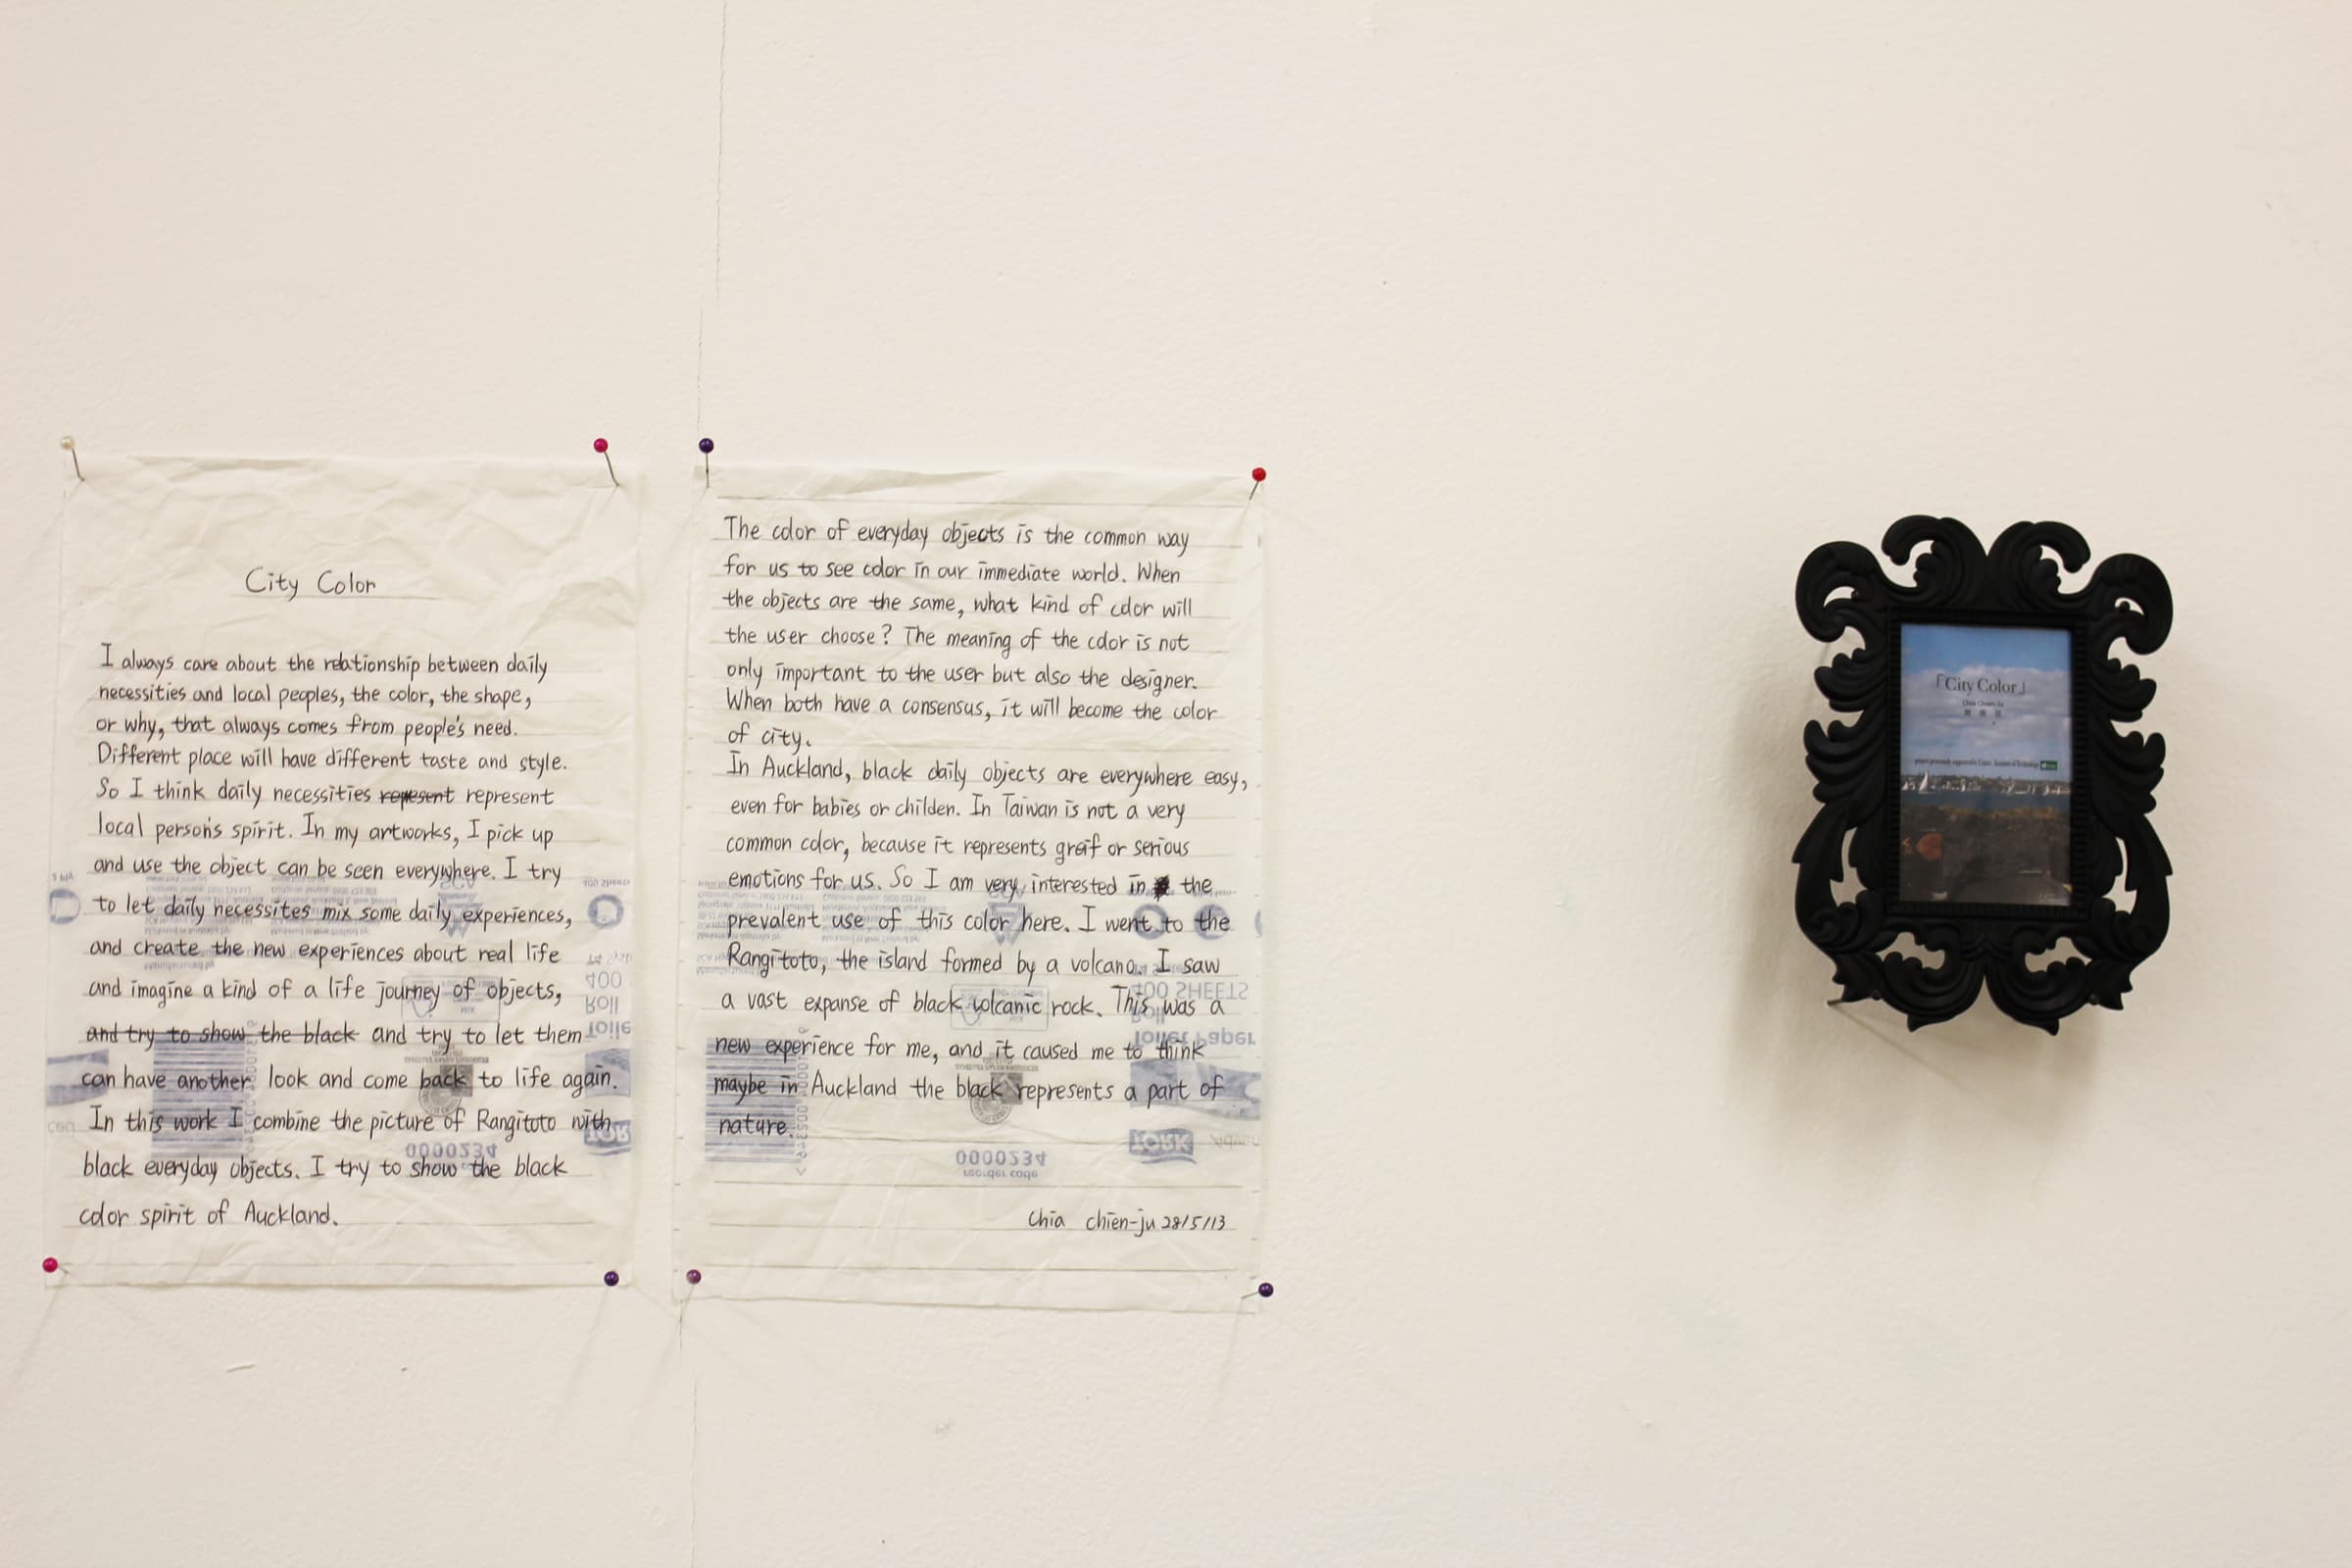 City Color
I always care about the relationship between daily
necessities and local peoples, the color, the shape,
or why, that always comes from people's need.
Different place will have different taste and style.
So I think daily necessities represent represent
local person's spirit. In my artworks, I pick up
and use the object can be seen everywhere. I try
to let daily necessites mix some daily experiences,
and create the new experiences about real life
and imagine a kind of a life journey of objects,
and try to show the black and try to let them
can have another look and come back to life again.
In this work I combine the picture of Rangitoto with
black everyday objects. I try to show the black
color spirit of Auckland.
The color of everyday objects is the common way
for us to see color in our immediate world. When
the objects are the same, what kind of color will
the user choose? The meaning of the color is not
only important to the user but also the designer.
When both have a consensus, it will become the color
of city.
In Auckland, black daily objects are everywhere easy,
even for babies or childen. In Taiwan is not a very
common color, because it represents greif or serious
emotions for us. So I am very interested in the
prevalent use of this color here. I went to the
Rangitoto, the island formed by a volcano. I saw
a vast expanse of black volcanic rock. This was a
new experience for me, and it caused me to think
maybe in Auckland the black represents a part of
nature.
Chia chien-ju 28/5/13
400 SHEETS
Roll
Toilet Paper
TORK
0000234
reorder code
400
Roll
0000234
「City Color」